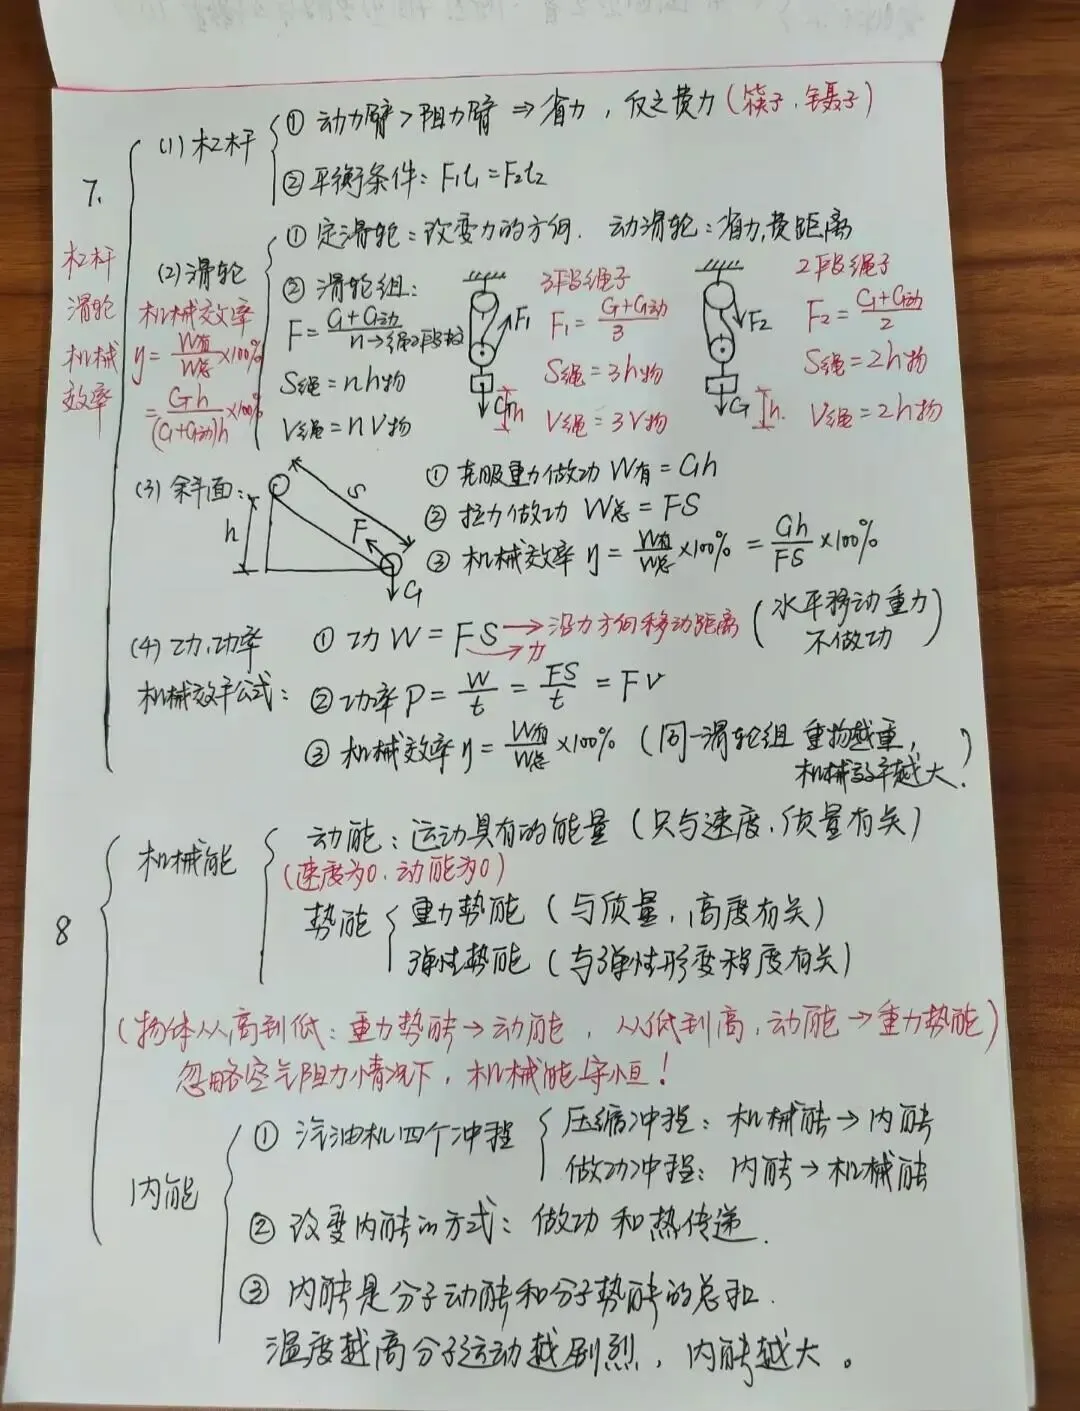 7.
杠杆
滑轮
机械
效率
(1) 杠杆
① 动力臂>阻力臂 ⇒ 省力, 反之费力 (筷子. 镊子)
② 平衡条件: F₁l₁=F₂l₂
(2) 滑轮
机械效率
η = W有/W总 ×100%
= Gh/(G+G动)h ×100%
① 定滑轮: 改变力的方向. 动滑轮: 省力,费距离
② 滑轮组:
F = G+G动/n→绳子段数
S绳=nh物
V绳=nV物
F₁
G
h
3段绳子
F₁ = G+G动/3
S绳=3h物
V绳=3V物
F₂
G
h.
2段绳子
F₂ = G+G动/2
S绳=2h物
V绳=2h物
(3) 斜面:
h
S
F
G
① 克服重力做功 W有=Gh
② 拉力做功 W总=FS
③ 机械效率 η = W有/W总 ×100% = Gh/FS ×100%
(4) 功,功率
机械效率公式:
① 功 W = FS → 沿力方向移动距离 (水平移动重力
→力 不做功)
② 功率 P = W/t = FS/t = FV
③ 机械效率 η = W有/W总 ×100% (同一滑轮组 重物越重,
机械效率越大.)
8
机械能
动能: 运动具有的能量 (只与速度, 质量有关)
(速度为0. 动能为0)
势能
重力势能 (与质量, 高度有关)
弹性势能 (与弹性形变程度有关)
(物体从高到低: 重力势能→动能, 从低到高, 动能→重力势能)
忽略空气阻力情况下, 机械能守恒!
内能
① 汽油机四个冲程
压缩冲程: 机械能→内能
做功冲程: 内能→机械能
② 改变内能的方式: 做功和热传递.
③ 内能是分子动能和分子势能的总和.
温度越高分子运动越剧烈, 内能越大。